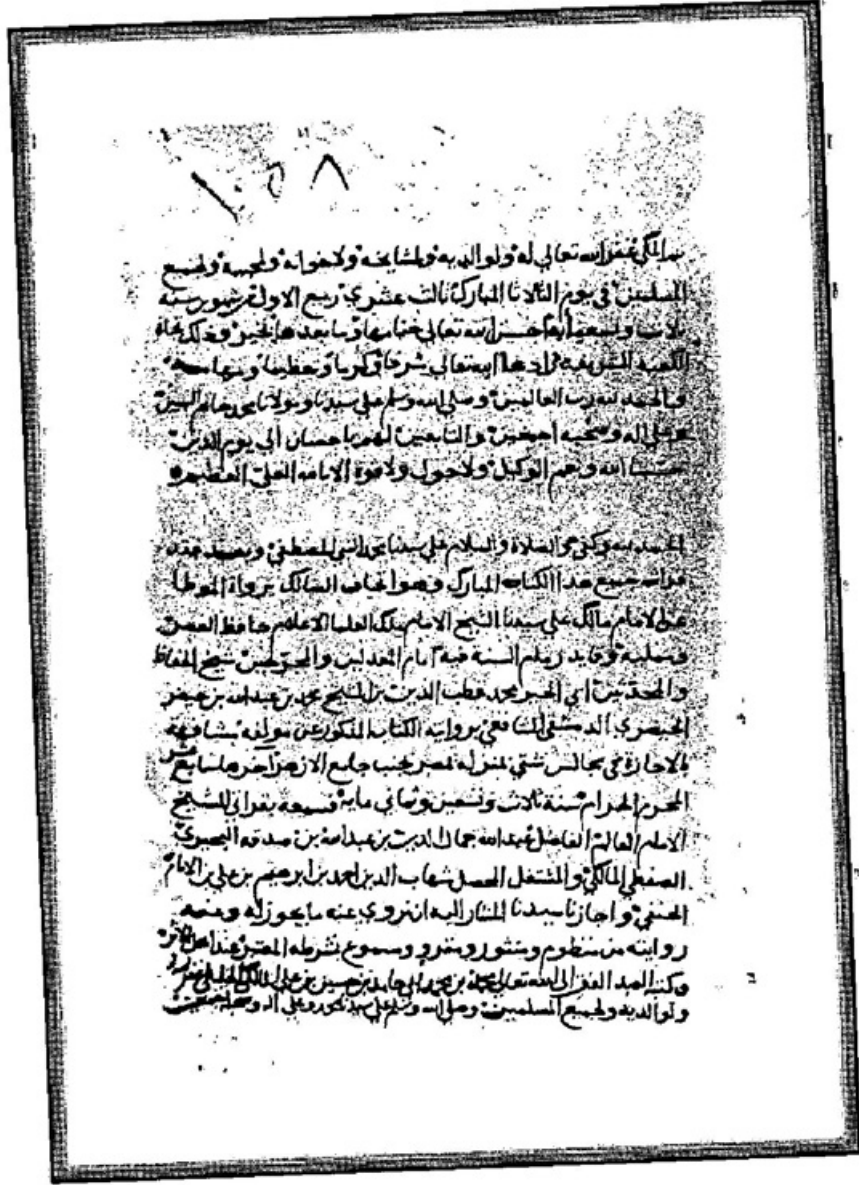 ١٥٨
المكي غفر الله تعالى له ولوالديه ولمشايخه ولاخوانه ولمحبيه ولجميع
المسلمين في يوم الثلاثا المبارك ثالث عشري ربيع الاول من شهور سنة
ثلاث وتسعين احسن الله تعالى ختامها وما بعدها بخير وذلك تجاه
الكعبة الشريفة زادها الله تعالى شرفا وتكريما وتعظيما ومهابة
والحمد لله رب العالمين وصلى الله وسلم على سيدنا ومولانا محمد خاتم النبيين
وعلى اله وصحبه اجمعين والتابعين لهم باحسان الى يوم الدين
حسبنا الله ونعم الوكيل ولا حول ولا قوة الا بالله العلي العظيم
الحمد لله وكفى والصلاة والسلام على سيدنا محمد النبي المصطفى وبعد فقد
قرات جميع هذا الكتاب المبارك وهو اتحاف السالك برواة الموطا
عن الامام مالك على سيدنا الشيخ الامام ملك العلما الاعلام حافظ العصر
وقايد زمام السنة فيه امام المعدلين والمجرحين شيخ الحفاظ
والمحدثين ابي الخير محمد قطب الدين بن الشيخ محمد بن عبد الله بن خيضر
الخيضري الدمشقي الشافعي بروايته الكتاب المذكور عن مولفه مشافهة
بالاجازة في مجالس شتى بمنزله بمصر بجنب جامع الازهر اخرها سابع عشر
المحرم الحرام سنة ثلاث وتسعين وثماني ماية فسمعه بقراتي الشيخ
الامام العالم الفاضل عبد الله جمال الدين بن عبد الله بن صدقه البحيري
المالكي والمشتغل المحصل شهاب الدين احمد بن ابرهيم بن علي بن الامام
الحنفي واجازنا سيدنا المشار اليه ان نروي عنه ما يجوز له وعنه
روايته من منظوم ومنثور ومقرو ومسموع بشرطه المعتبر عند اهل الاثر
وكتبه العبد الفقير الى الله تعالى محمد بن حسين بن علي المالكي غفر له
ولوالديه ولجميع المسلمين وصلى الله وسلم على سيدنا محمد وعلى اله وصحبه اجمعين